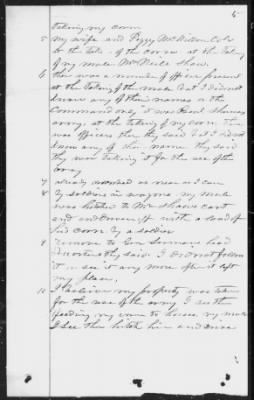 5
taking my corn
5 my wife and Peggy McMillan Col
to the take of the corn at the taking
of my mule Mr Neill Shaw.
6 there was a number of officers present
at the taking of the mule but I did not
know any of their names or the
command only it was Genl Shermans
army, at the taking of my corn there
was officers there they said but I did not
know any of their name they said
they was taking it for the use of the
army
7 already described as near as I can
8 by soldiers in my one my mule
was hitched to Mr Shaws cart
and and driven off with a load of
his corn by a soldier
9 remove to Gen Shermans head
quarters they said. I did not follow
it or see it any more after it left
my place.
10 I believe my property was taken
for the use of the army I see them
feeding my corn to horses my mule
I see them hitch him and drive